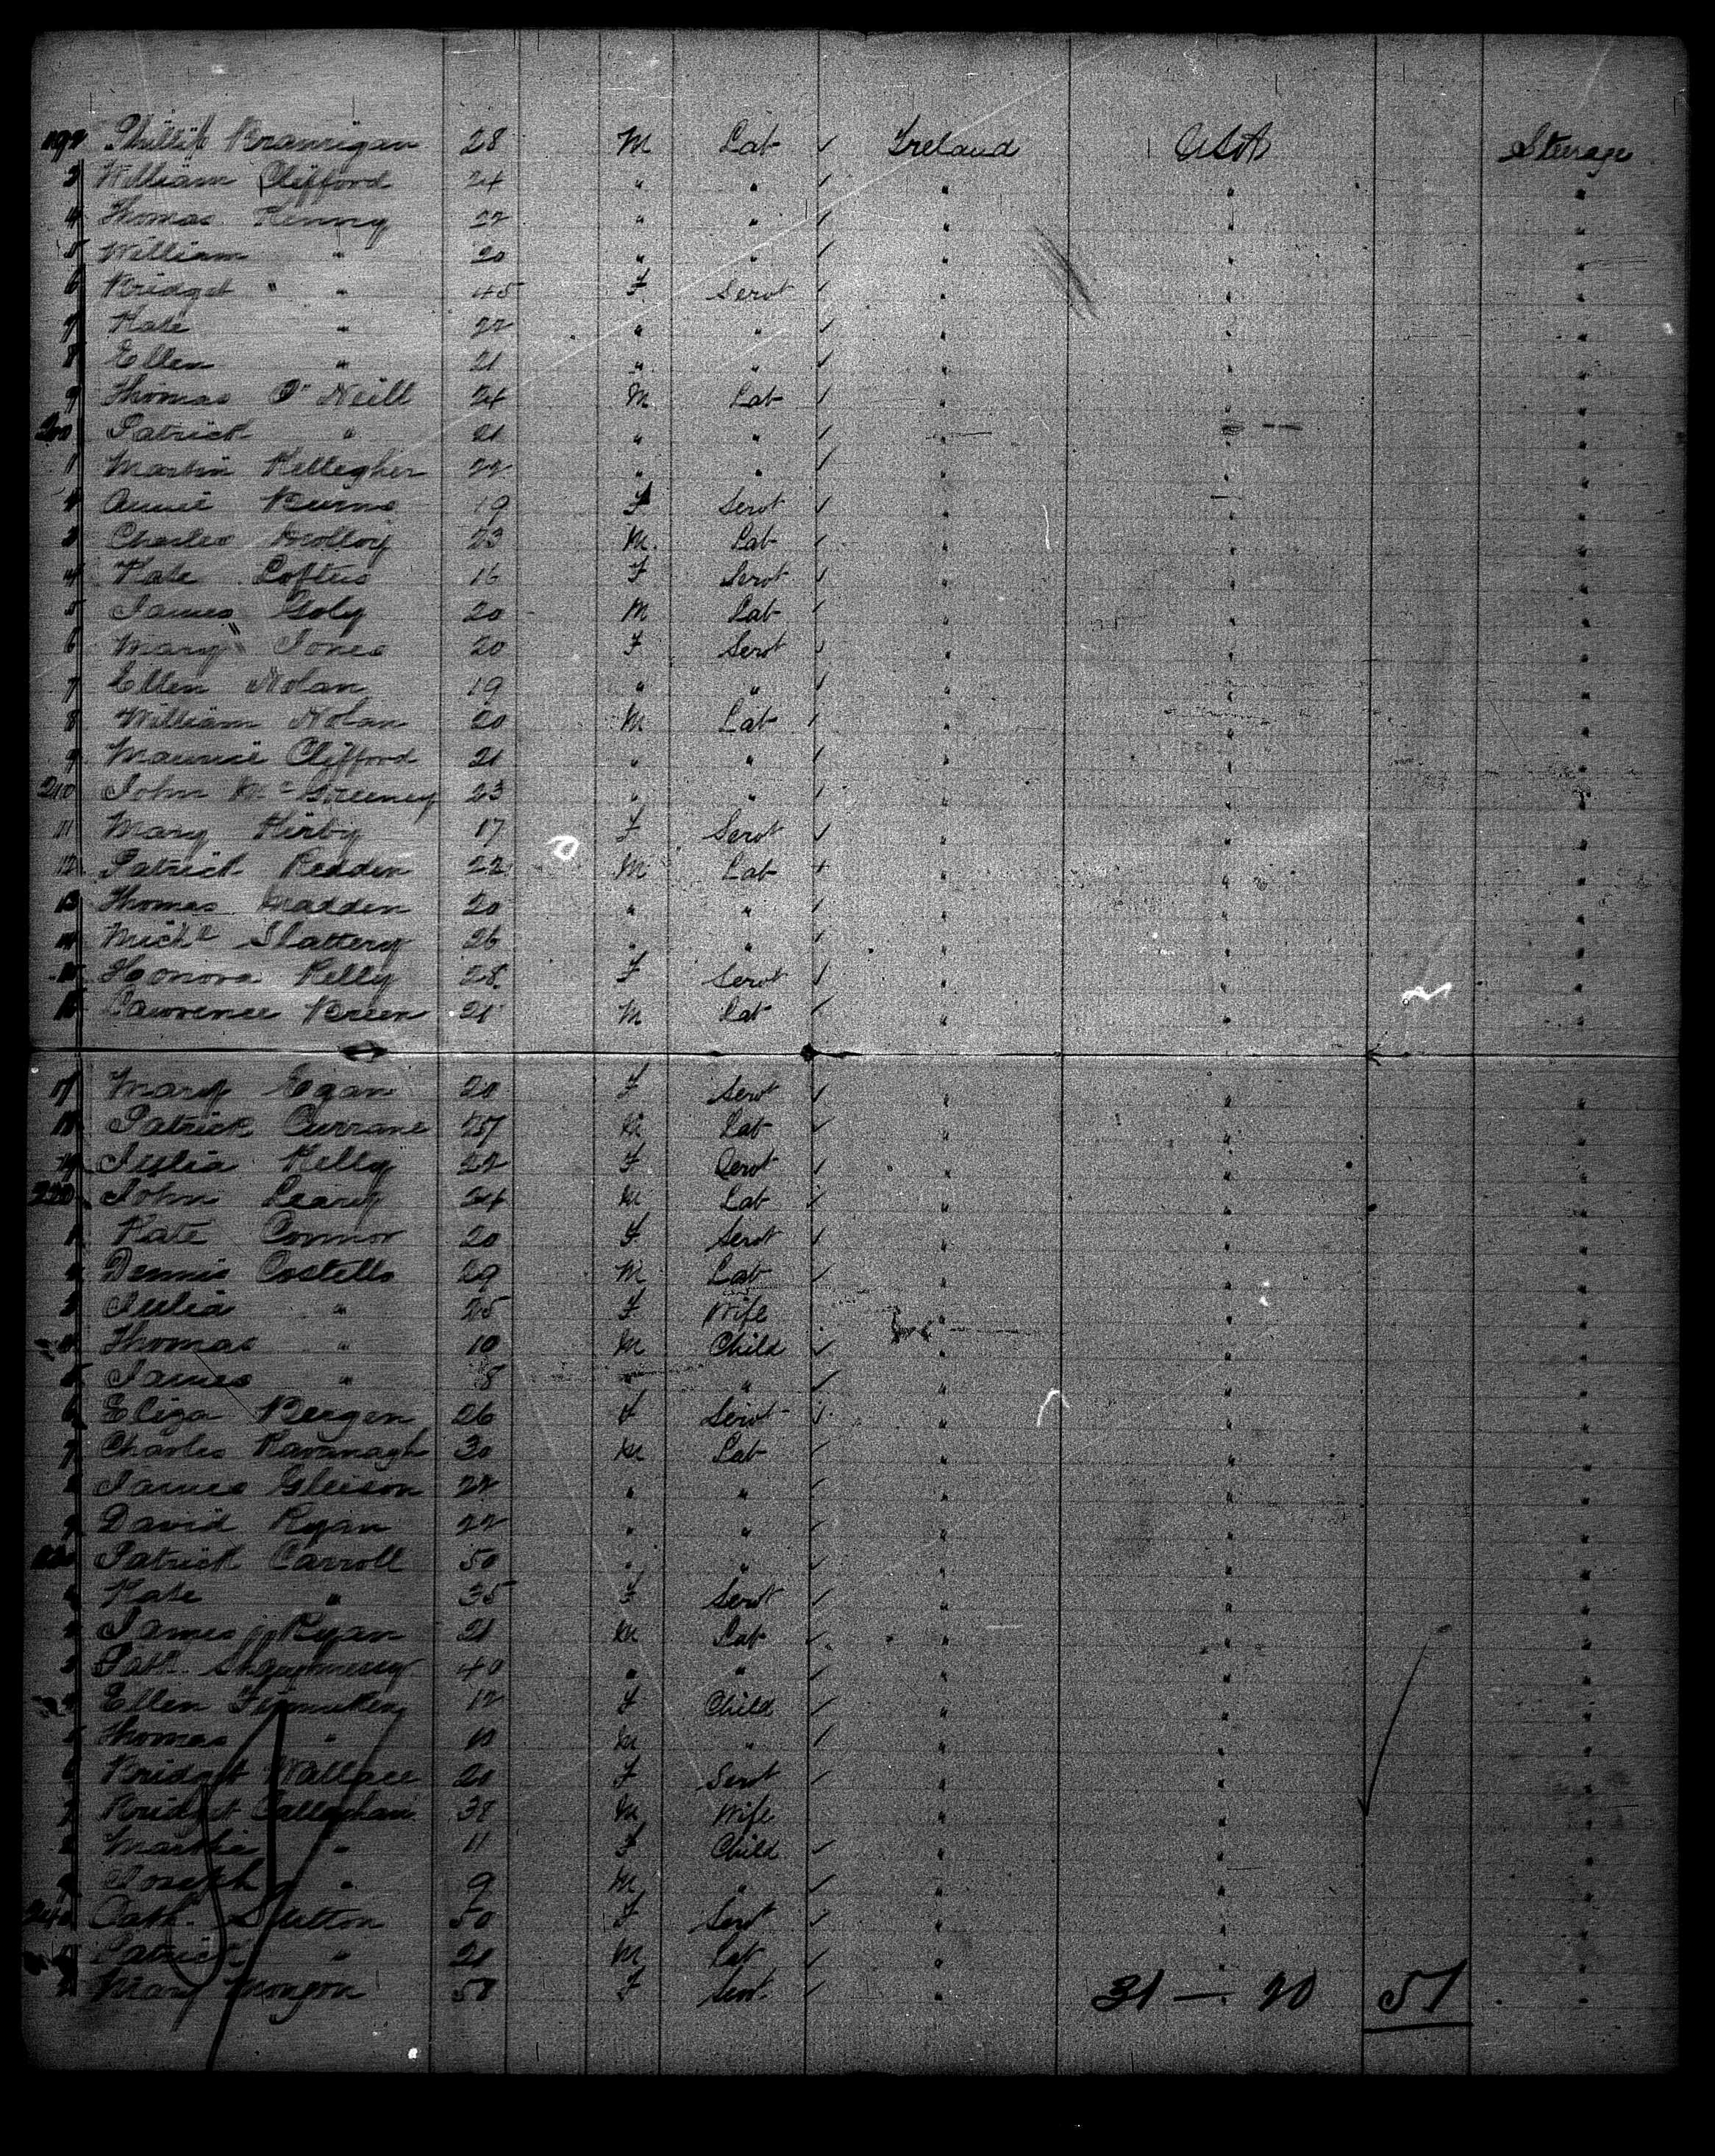 192 Phillip Brannigan 28 M Lab ✓ Ireland USA Steerage
3 William Clifford 24 " " ✓ " " "
4 Thomas Kenny 22 " " ✓ " " "
5 William " 20 " " ✓ " " "
6 Bridget " 45 F Servt ✓ " " "
7 Kate " 22 " " ✓ " " "
8 Ellen " 21 " " ✓ " " "
9 Thomas O'Neill 24 M Lab ✓ " " "
200 Patrick " 21 " " ✓ " " "
1 Martin Kellegher 22 " " ✓ " " "
2 Annie Burns 19 F Servt ✓ " " "
3 Charles Molloy 23 M Lab ✓ " " "
4 Kate Loftus 16 F Servt ✓ " " "
5 James Goly 20 M Lab ✓ " " "
6 Mary Jones 20 F Servt ✓ " " "
7 Ellen Nolan 19 " " ✓ " " "
8 William Nolan 20 M Lab ✓ " " "
9 Maurice Clifford 21 " " ✓ " " "
210 John McGreeney 23 " " ✓ " " "
11 Mary Kirby 17 F Servt ✓ " " "
12 Patrick Redden 22 M Lab + " " "
13 Thomas Madden 20 " " ✓ " " "
14 Michl Slattery 26 " " ✓ " " "
15 Honora Kelly 28 F Servt ✓ " " "
16 Lawrence Breen 21 M Lab ✓ " " "
17 Mary Egan 20 F Servt ✓ " " "
18 Patrick Currane M Lab ✓ " " "
19 Julia Kelly 22 F Servt ✓ " " "
220 John Leary 24 M Lab ✓ " " "
1 Kate Connor 20 F Servt ✓ " " "
2 Dennis Costello 29 M Lab ✓ " " "
3 Julia " 25 F Wife " " "
4 Thomas " 10 M Child ✓ " " "
5 James " 8 " " ✓ " " "
6 Eliza Bergen 26 F Servt ✓ " " "
7 Charles Kavanagh 30 M Lab ✓ " " "
8 James Gleison 22 " " ✓ " " "
9 David Ryan 22 " " ✓ " " "
Patrick Carroll 50 " " ✓ " " "
Kate " 35 F Servt ✓ " " "
2 James Ryan 21 M Lab ✓ " " "
3 Patk 40 " " ✓ " " "
4 Ellen 12 F Child ✓ " " "
5 Thomas " 10 M " ✓ " " "
6 Bridget Wallace 20 F Servt ✓ " " "
7 Bridget Callaghan 38 M Wife " " "
8 Martha " 11 F Child ✓ " " "
9 Joseph " 9 M " ✓ " " "
240 Cath. 50 F Servt ✓ " " "
1 Patrick " 21 M Lab ✓ " " "
2 Mary F Servt ✓ " 31 — 20 51 "